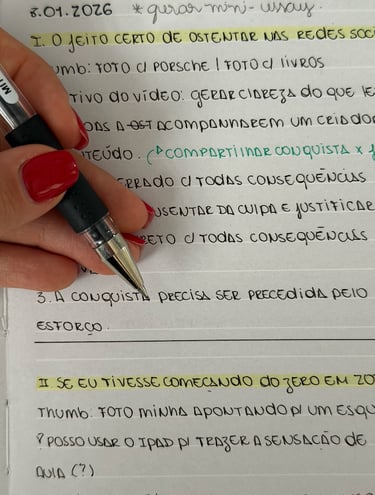 8.01.2026 * gerar mini-essay.
I. O JEITO CERTO DE OSTENTAR NAS REDES SOCI
UMB: FOTO C/ PORSCHE | FOTO C/ LIVROS
TIVO DO VÍDEO: GERAR CLAREZA DO QUE LE
OAS A OST ACOMPANHAREM UM CRIADOR
TEÚDO. (COMPARTILHAR CONQUISTA X
ERRADO C/ TODAS CONSEQUÊNCIAS
USENTAR DA CULPA E JUSTIFICAR
RETO C/ TODAS CONSEQUÊNCIAS
3. A CONQUISTA PRECISA SER PRECEDIDA PELO
ESFORÇO.
II. SE EU TIVESSE COMEÇANDO DO ZERO EM 20
THUMB: FOTO MINHA APONTANDO P/ UM ESQU
? POSSO USAR O IPAD P/ TRAZER A SENSAÇÃO DE
AULA (?)